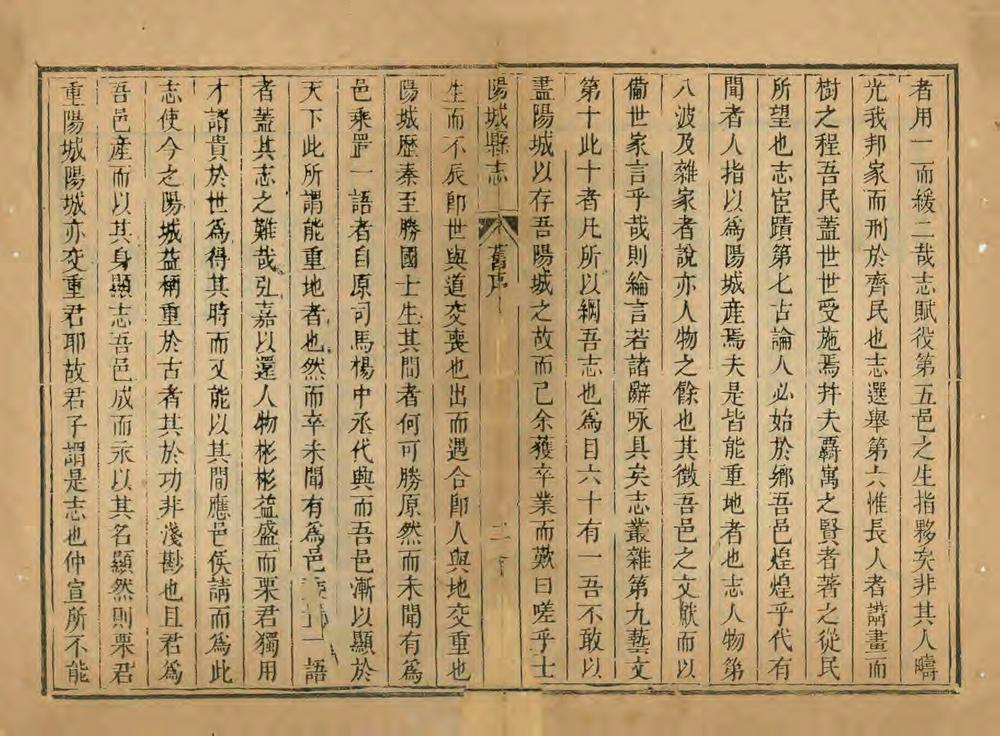 者用一而緩二哉志賦役第五邑之生指夥矣非其人疇
光我邦家而刑於齊民也志選舉第六惟長人者謀畫而
樹之程吾民蓋世世受施焉幷夫覊寓之賢者著之從民
所望也志宦蹟第七古論人必始於鄉吾邑煌煌乎代有
聞者人指以爲陽城産焉夫是皆能重地者也志人物第
八波及雜家者說亦人物之餘也其徵吾邑之文獻而以
備世家言乎哉則綸言若諸辭咏具矣志叢雜第九藝文
第十此十者凡所以綱吾志也爲目六十有一吾不敢以
盡陽城以存吾陽城之故而已余獲卒業而歎曰嗟乎士
陽城縣志 舊序 二
生而不辰卽世與道交喪也出而遇合卽人與地交重也
陽城歷秦至勝國士生其間者何可勝原然而未聞有爲
邑乘置一語者自原司馬楊中丞代興而吾邑漸以顯於
天下此所謂能重地者也然而卒未聞有爲邑乘置一語
者蓋其志之難哉弘嘉以還人物彬彬益盛而栗君獨用
才諝貴於世爲得其時而又能以其間應邑侯請而爲此
志使今之陽城益稱重於古者其於功非淺尠也且君爲
吾邑産而以其身顯志吾邑成而永以其名顯然則栗君
重陽城陽城亦交重君耶故君子謂是志也仲宣所不能